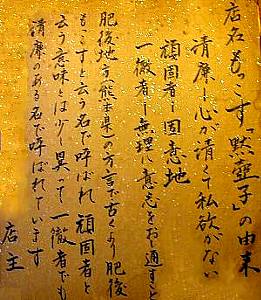 店名もっこす「黙壷子」の由来
清廉ー心が清くて私欲がない
頑固者ー固意地
一徹者ー無理に意志をおし通すこと
肥後地方(熊本県)の方言で古くより肥後
もっこすと云う名で呼ばれ頑固者と
云う意味とは少し異って一徹者でも
清廉のある名で呼ばれています
店主